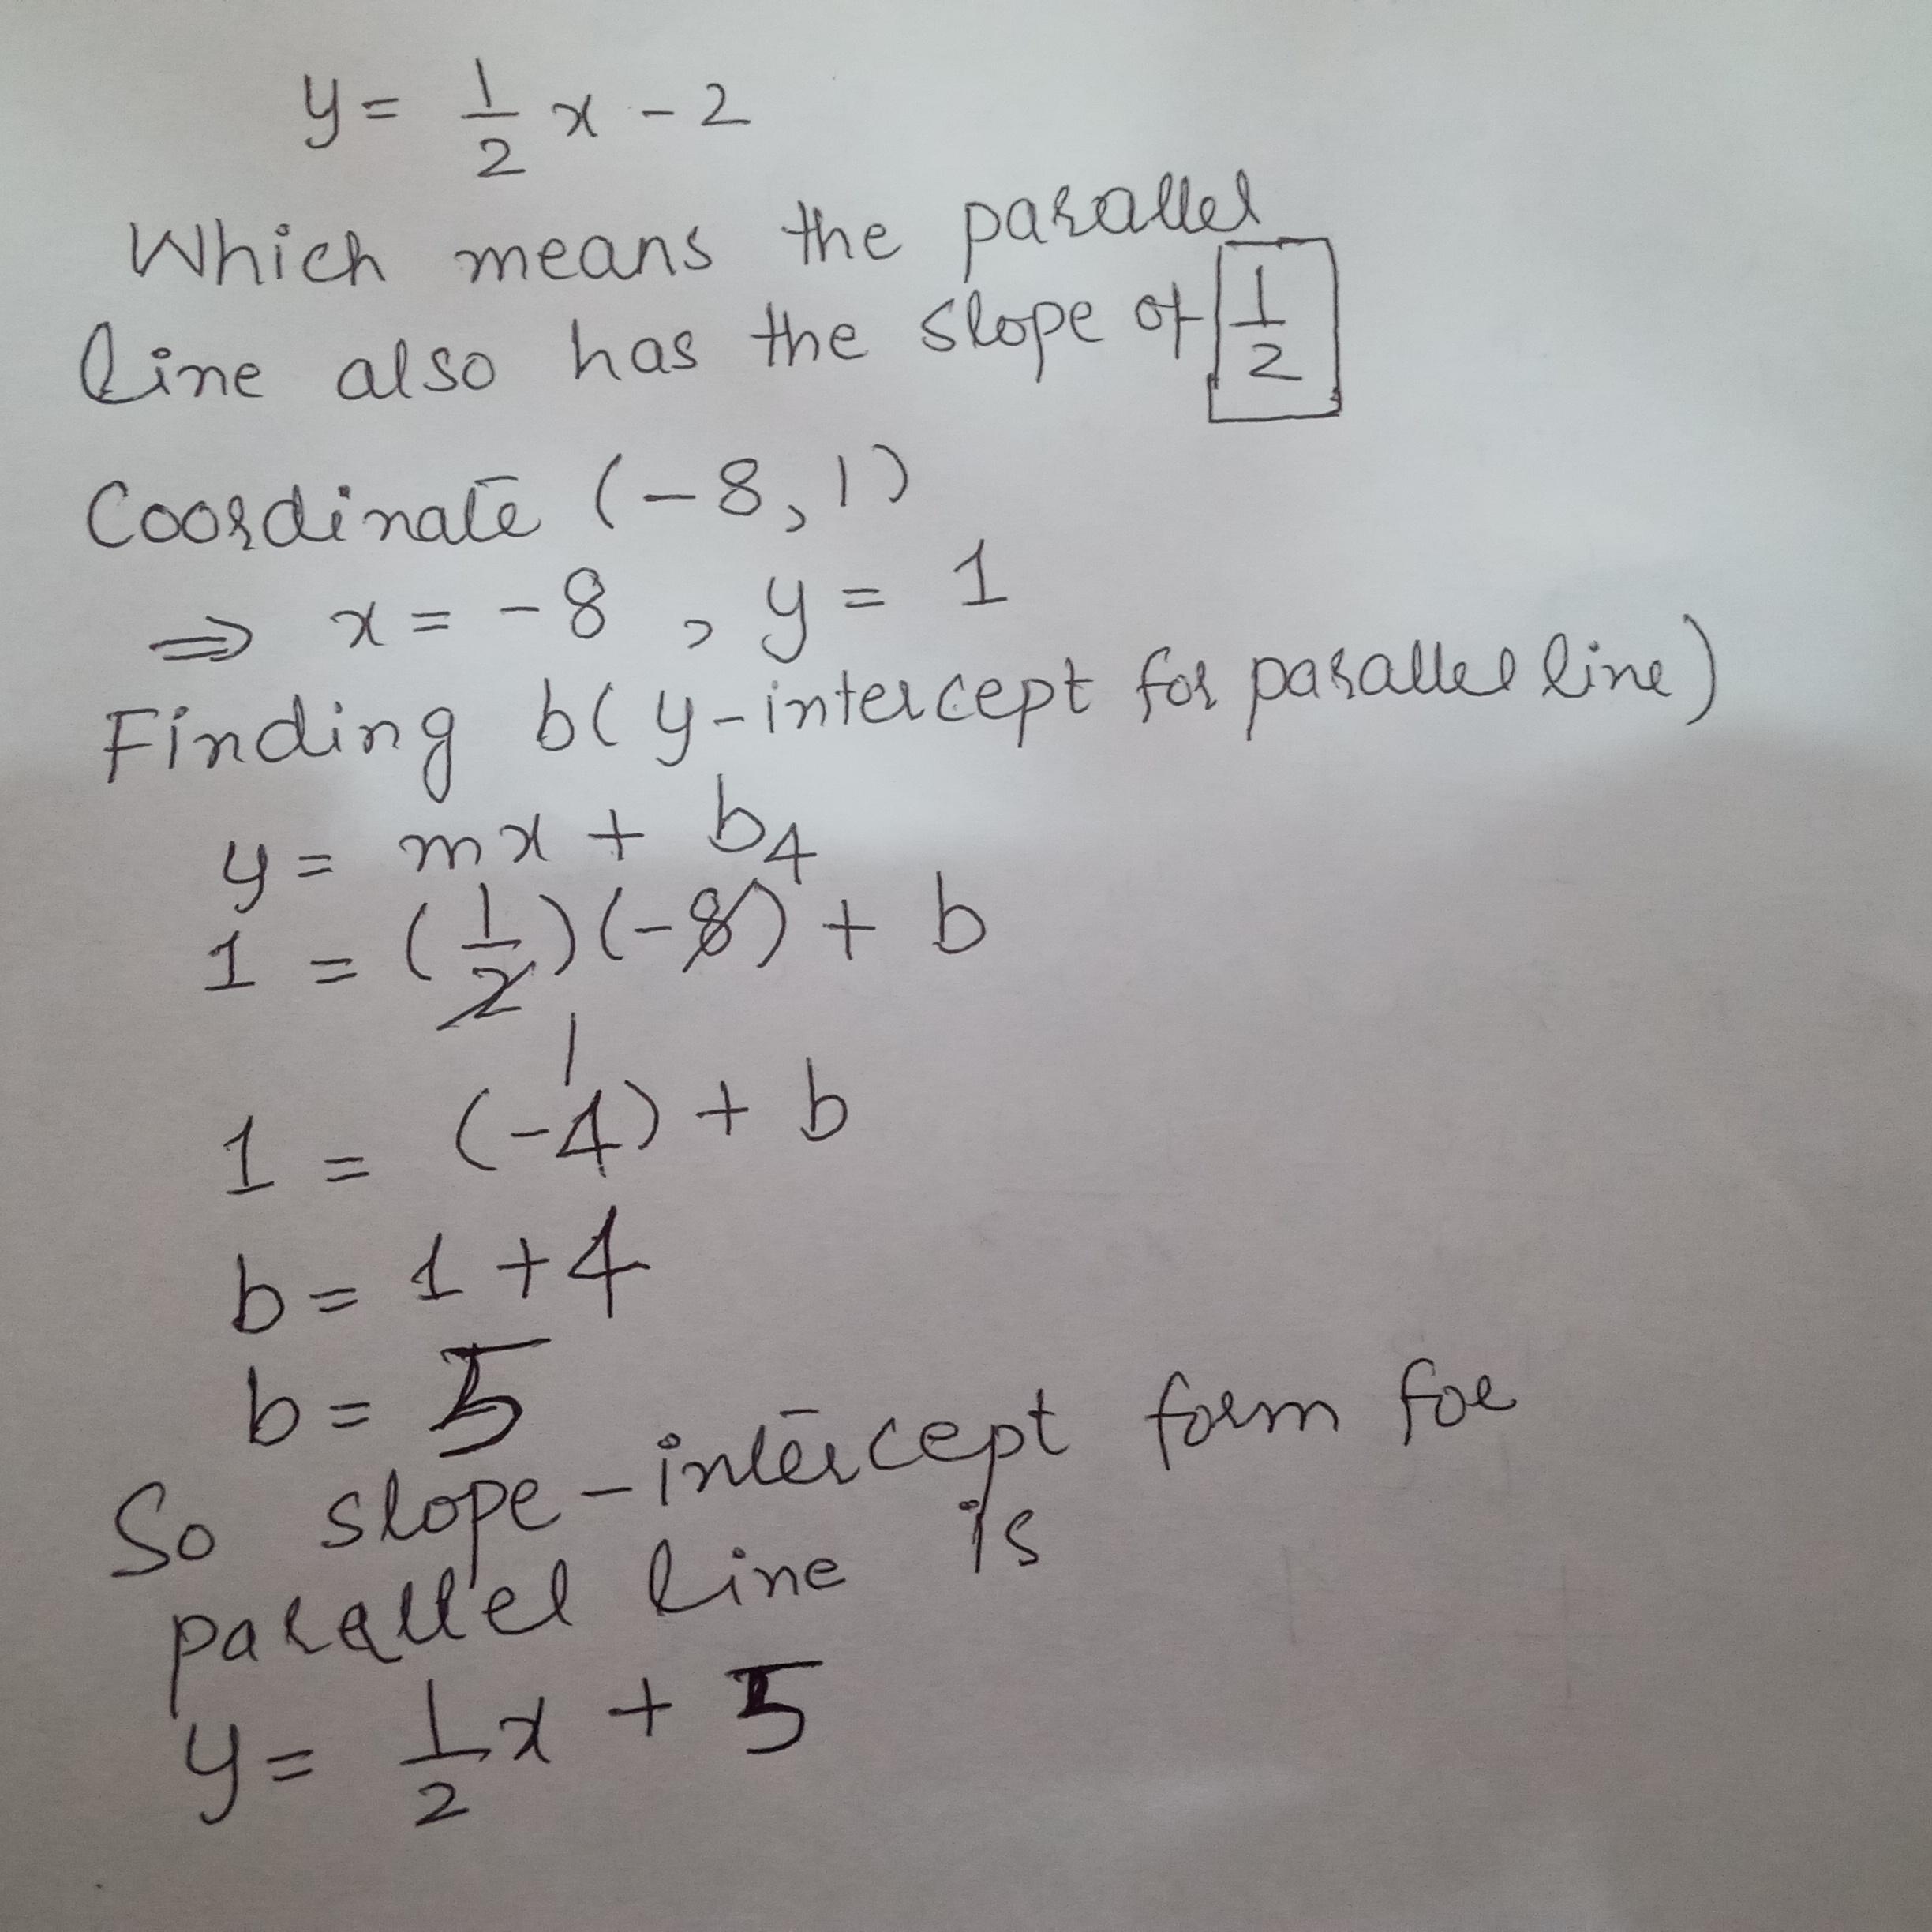 y = 1/2 x - 2
Which means the parallel
line also has the slope of 1/2
Coordinate (-8, 1)
⇒ x = -8 , y = 1
Finding b( y-intercept for parallel line)
y = mx + b
4
1 = (1/2)(-8) + b
1
1 = (-4) + b
b = 1 + 4
b = 5
So slope-intercept form for
parallel line is
y = 1/2 x + 5